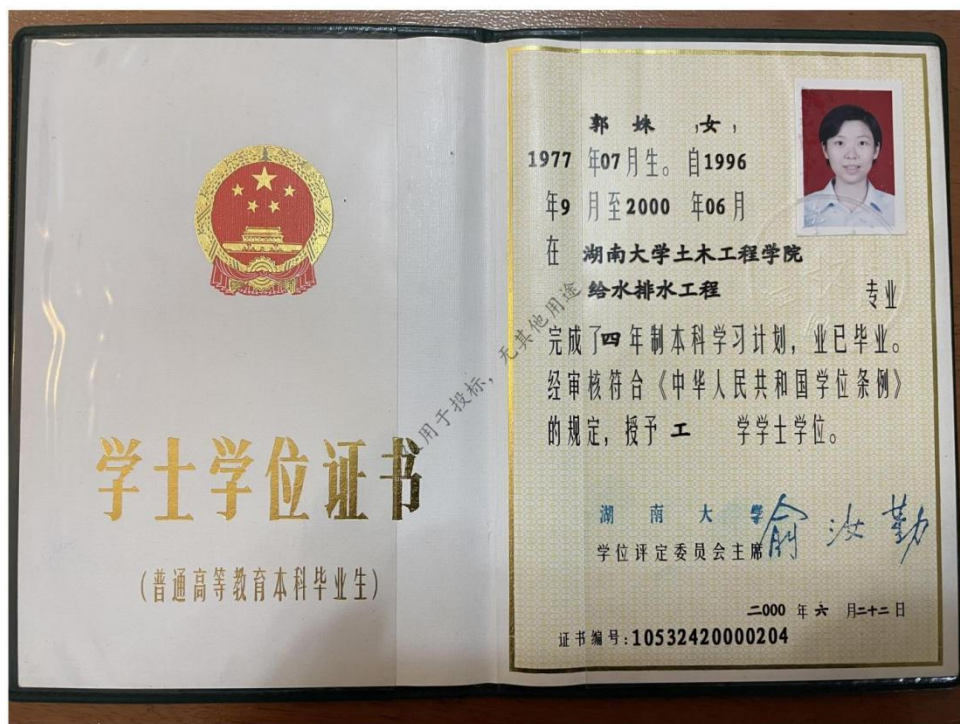 学士学位证书
(普通高等教育本科毕业生)
郭 姝 ,女,
1977 年07月生。自1996
年9 月至2000 年06月
在 湖南大学土木工程学院
给水排水工程 专业
完成了四年制本科学习计划,业已毕业。
经审核符合《中华人民共和国学位条例》
的规定,授予 工 学学士学位。
湖 南 大 学
学位评定委员会主席 俞汝勤
二000 年 六 月二十二日
证书编号:10532420000204
用于投标,无其他用途